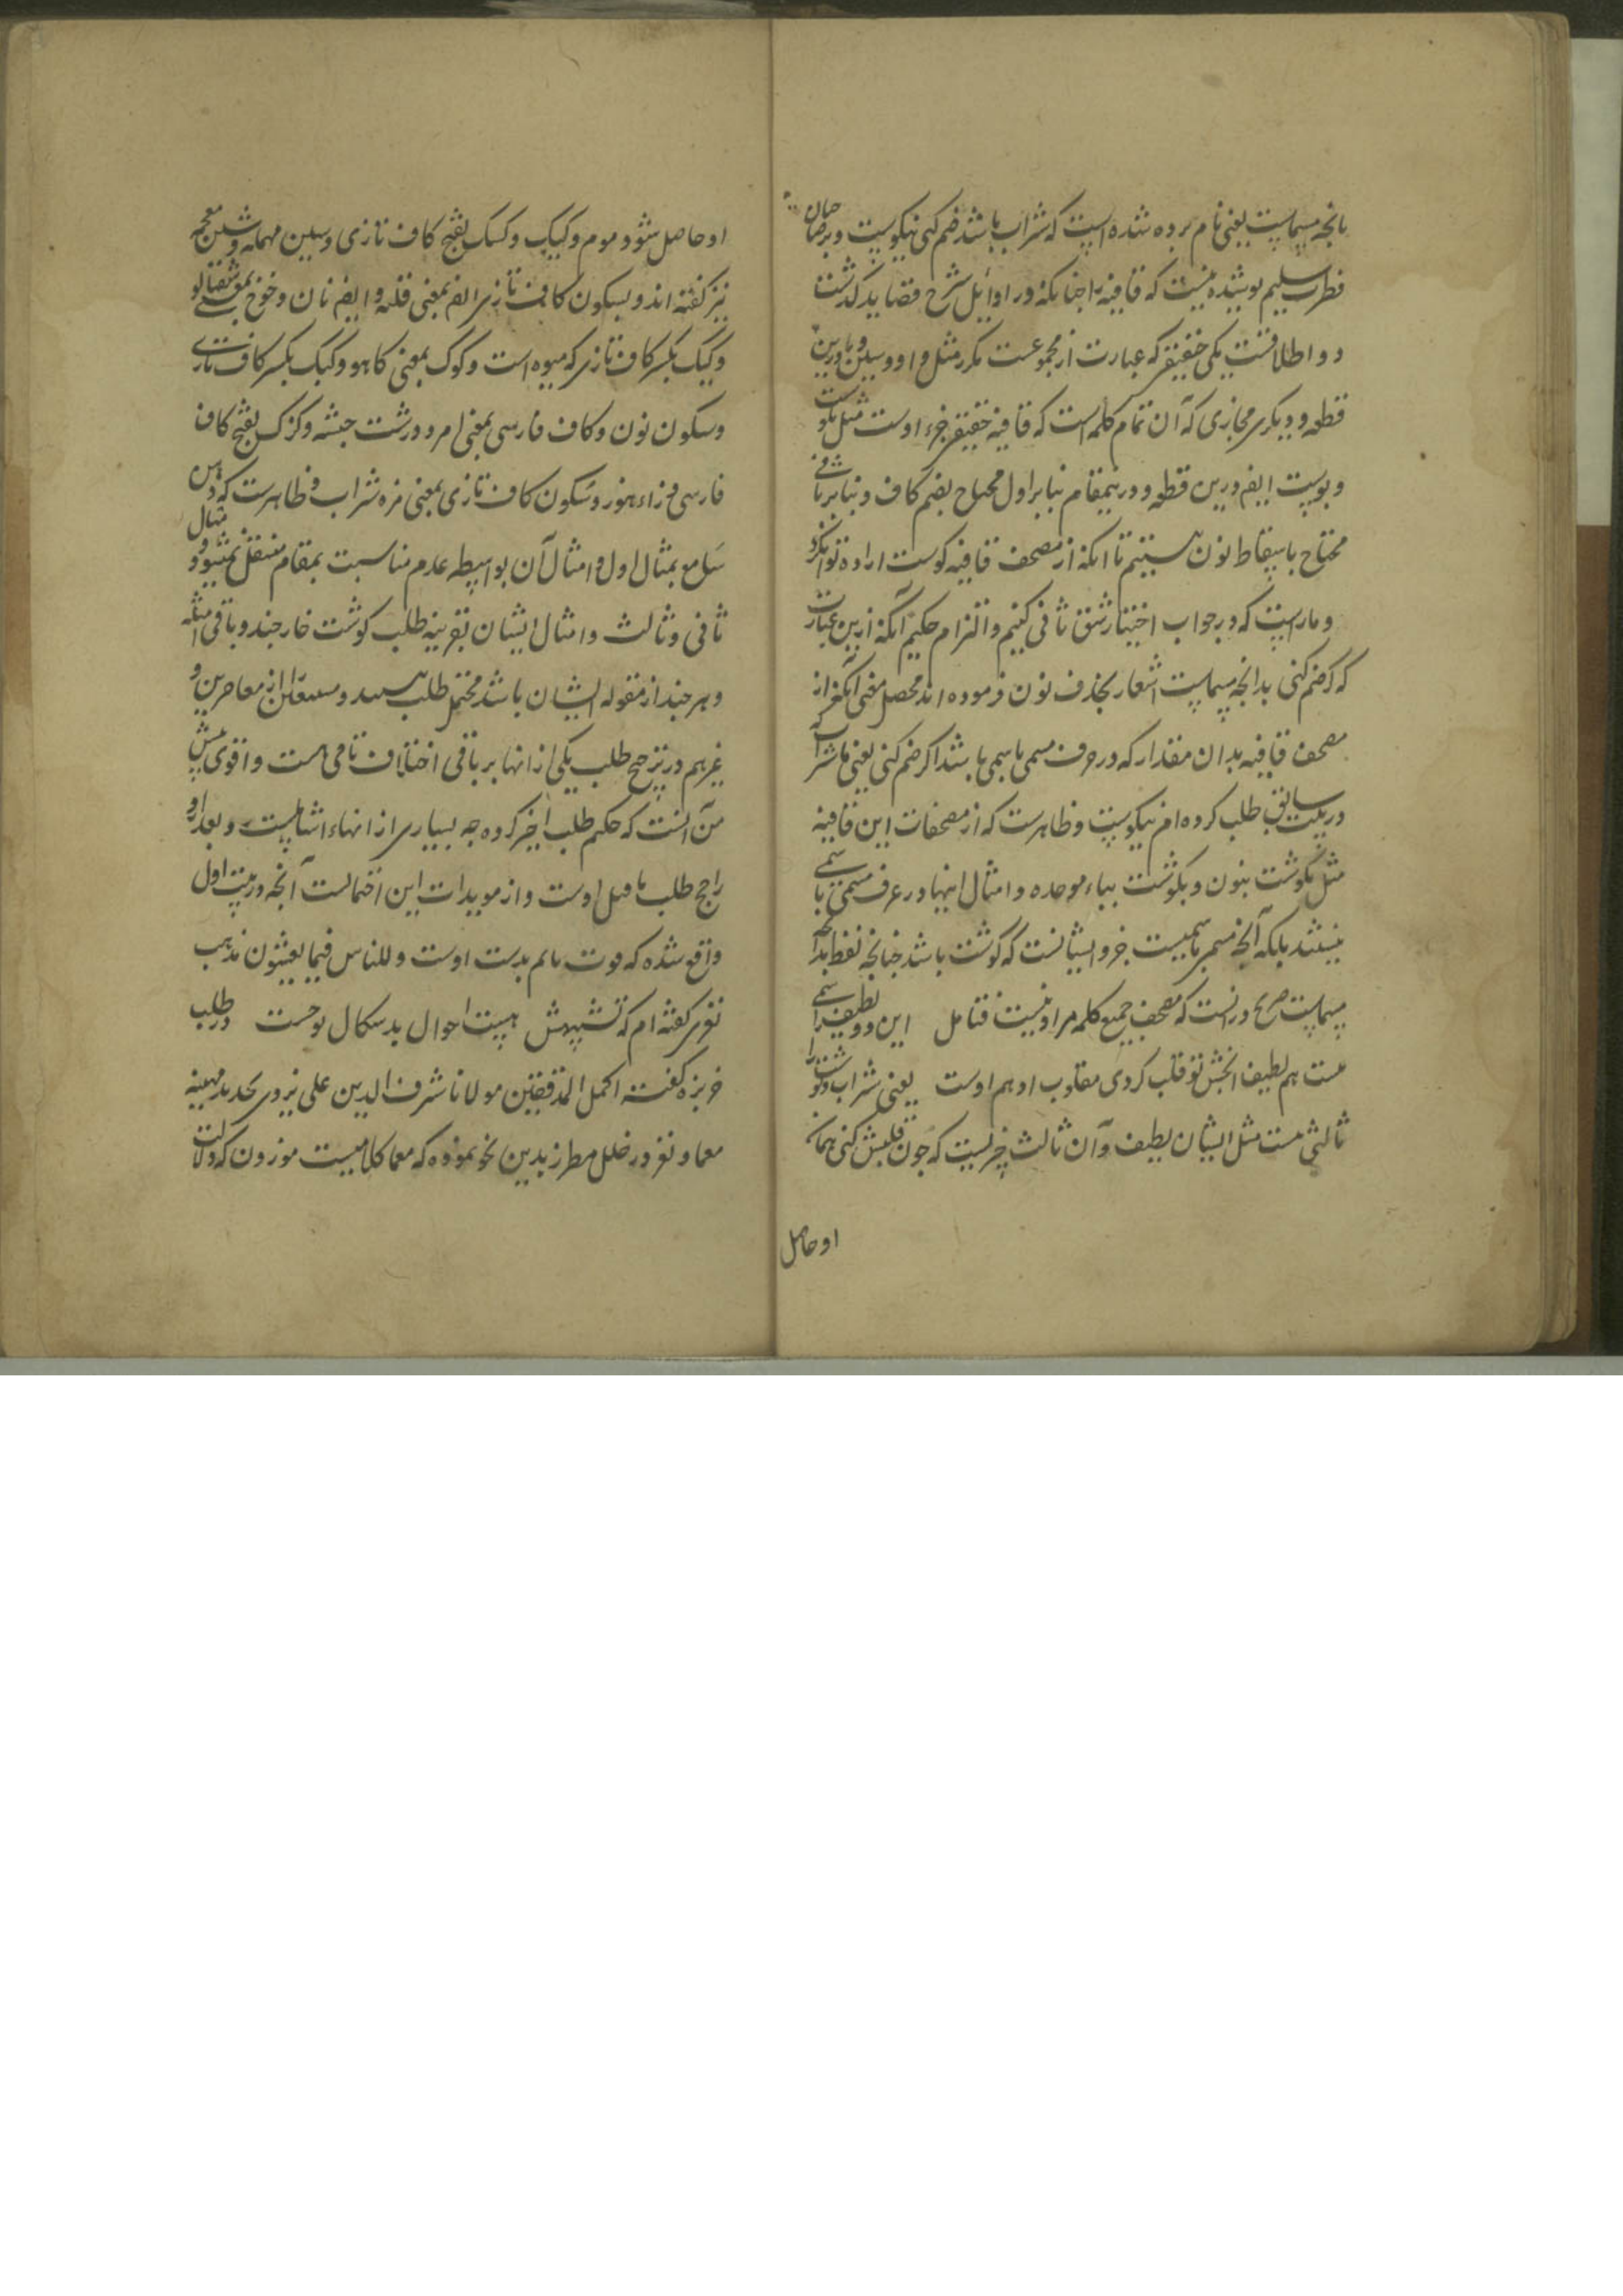 بانچه مسماست یعنی نام برده شده است که شراب باشد ضم کنی نیکوست و بر صاحبان
فطرت سلیم پوشیده نیست که قافیه را چنانکه در اوایل شرح قصاید گذشت
دو اطلاقست یکی حقیقی که عبارت از مجموعست مکرر مثل واو و سین و تا درین
قطعه و دیگری مجازی که آن تمام کلمه است که قافیه حقیقی جزء اوست مثل نکوست
و پوست ایضا درین قطعه و درینمقام بنابر اول محتاج بضم کاف و بنابر ثانی
محتاج باسقاط نون نیستیم تا آنکه از مصحف قافیه گوشت اراده توانکرد
و ما راست که در جواب اختیار شق ثانی کنیم و التزام حکیم آنکه ازین عبارت
که که ضم کنی بدانچه مسماست اشعار بحذف نون فرموده اند محصل معنی آنکه از
مصحف قافیه بدان مقدار که در عرف مسمی باسمی باشد اگر ضم کنی یعنی با شراب که
در بیت سابق طلب کرده ام نیکوست و ظاهرست که از مصحفات این قافیه
مثل نگوشت بنون و بگوشت بباء موحده و امثال اینها در عرف مسمی باسمی
نیستند بلکه آنچه مسمی باسمیست جزو ایشانست که گوشت باشد چنانچه لفظ بدانچه
مسماست صریح درانست که مصحف جمیع کلمه مراد نیست فتامل این دو لطیف را سیمی
هست هم لطیف الخبش تو قلب کردی مقلوب او هم اوست یعنی شراب و گوشت را
ثالثی هست مثل ایشان لطیف و آن ثالث چیزیست که چون قلبش کنی همان
او حاصل
او حاصل شود و موم و کیک و کسک بفتح کاف تازی و سین مهمله و شین معجمه
نیز گفته اند و بسکون کاف تازی ایضا بمعنی قلیه و ایضا نان و خوخ بمعنی شفتالو
و کیک بکسر کاف تازی که میوه است و کوک بمعنی کاهو و کنک بکسر کاف تازی
و سکون نون و کاف فارسی بمعنی امرد درشت جثه و کزک بفتح کاف
فارسی و زاء هوز و سکون کاف تازی بمعنی مزه شراب و ظاهرست که ذهن
سامع بمثال اول و امثال آن بواسطه عدم مناسبت بمقام منتقل نمیشود و مثال
ثانی و ثالث و امثال ایشان بقرینه طلب گوشت خارجند و باقی امثله
و هر چند از مقوله ایشان باشد محتمل طلب هستند و مستعدان از معاصرین و
غیرهم در ترجیح طلب یکی ازانها بر باقی اختلاف تامی هست و اقوی پیش
من آنست که حکیم طلب اخیر کرده چه بسیاری ازانهاء اشیاست و بعد ازو
راجح طلب ما قبل اوست و از مویدات این احتمالست آنچه در بیت اول
واقع شده که قوت مالم بدست اوست و للناس فیما یعشقون مذهب
لغزی گفته ام که تشبیهش هست احوال بدسگال توجست در طلب
خربزه گفته اکمل المدققین مولانا شرف الدین علی یزدی تحدید مهینه
معما و لغز در حلل مطرز بدین نحو نموده که معما کلامیست موزون که دلالت